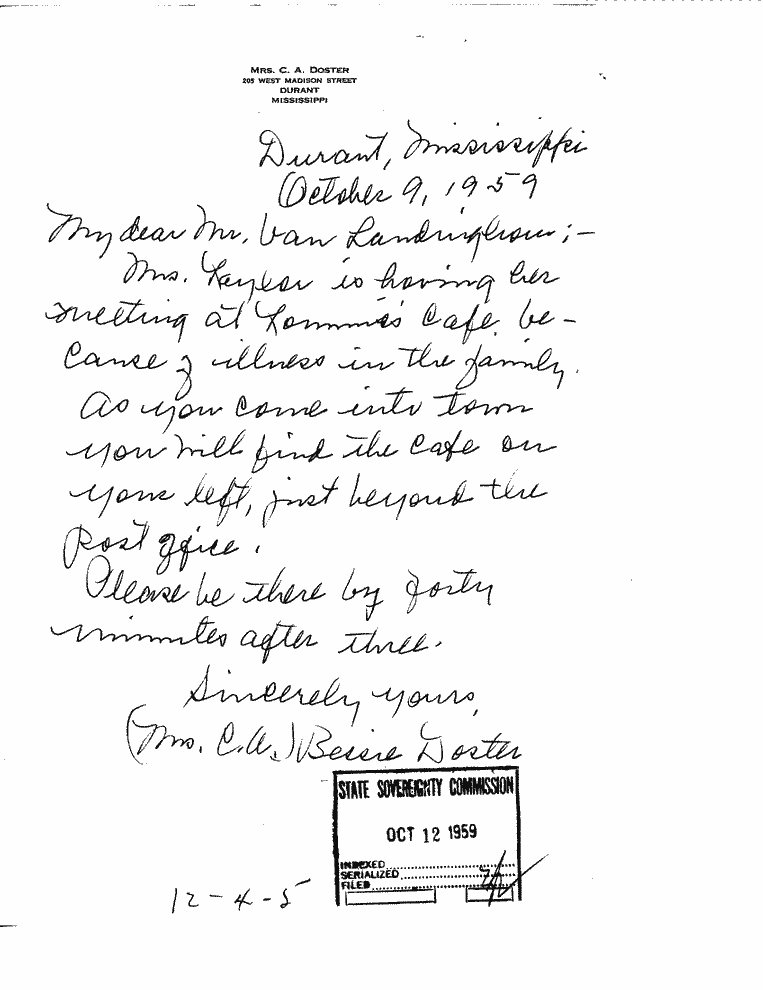 MRS. C. A. DOSTER
205 WEST MADISON STREET
DURANT
MISSISSIPPI
Durant, Mississippi
October 9, 1959
My dear Mr. Van Landingham;-
Mrs. Taylor is having her
meeting at Tommie's Cafe be-
cause of illness in the family.
As you come into town
you will find the cafe on
your left, just beyond the
Post office.
Please be there by forty
minutes after three.
Sincerely yours,
(Mrs. C.A.) Bessie Doster
STATE SOVEREIGNTY COMMISSION
OCT 12 1959
INDEXED
SERIALIZED
FILED
12-4-5